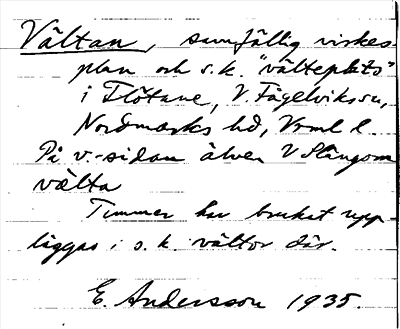 Vältan, samfällig virkes-
plan och s.k. "välteplats"
i Flötane, V. Fågelviks sn,
Nordmarks hd, Vrml l.
På v.-sidan älven V Slängom
välta
Timmer har brukat upp-
läggas i s.k. vältor där.
E. Andersson 1935.